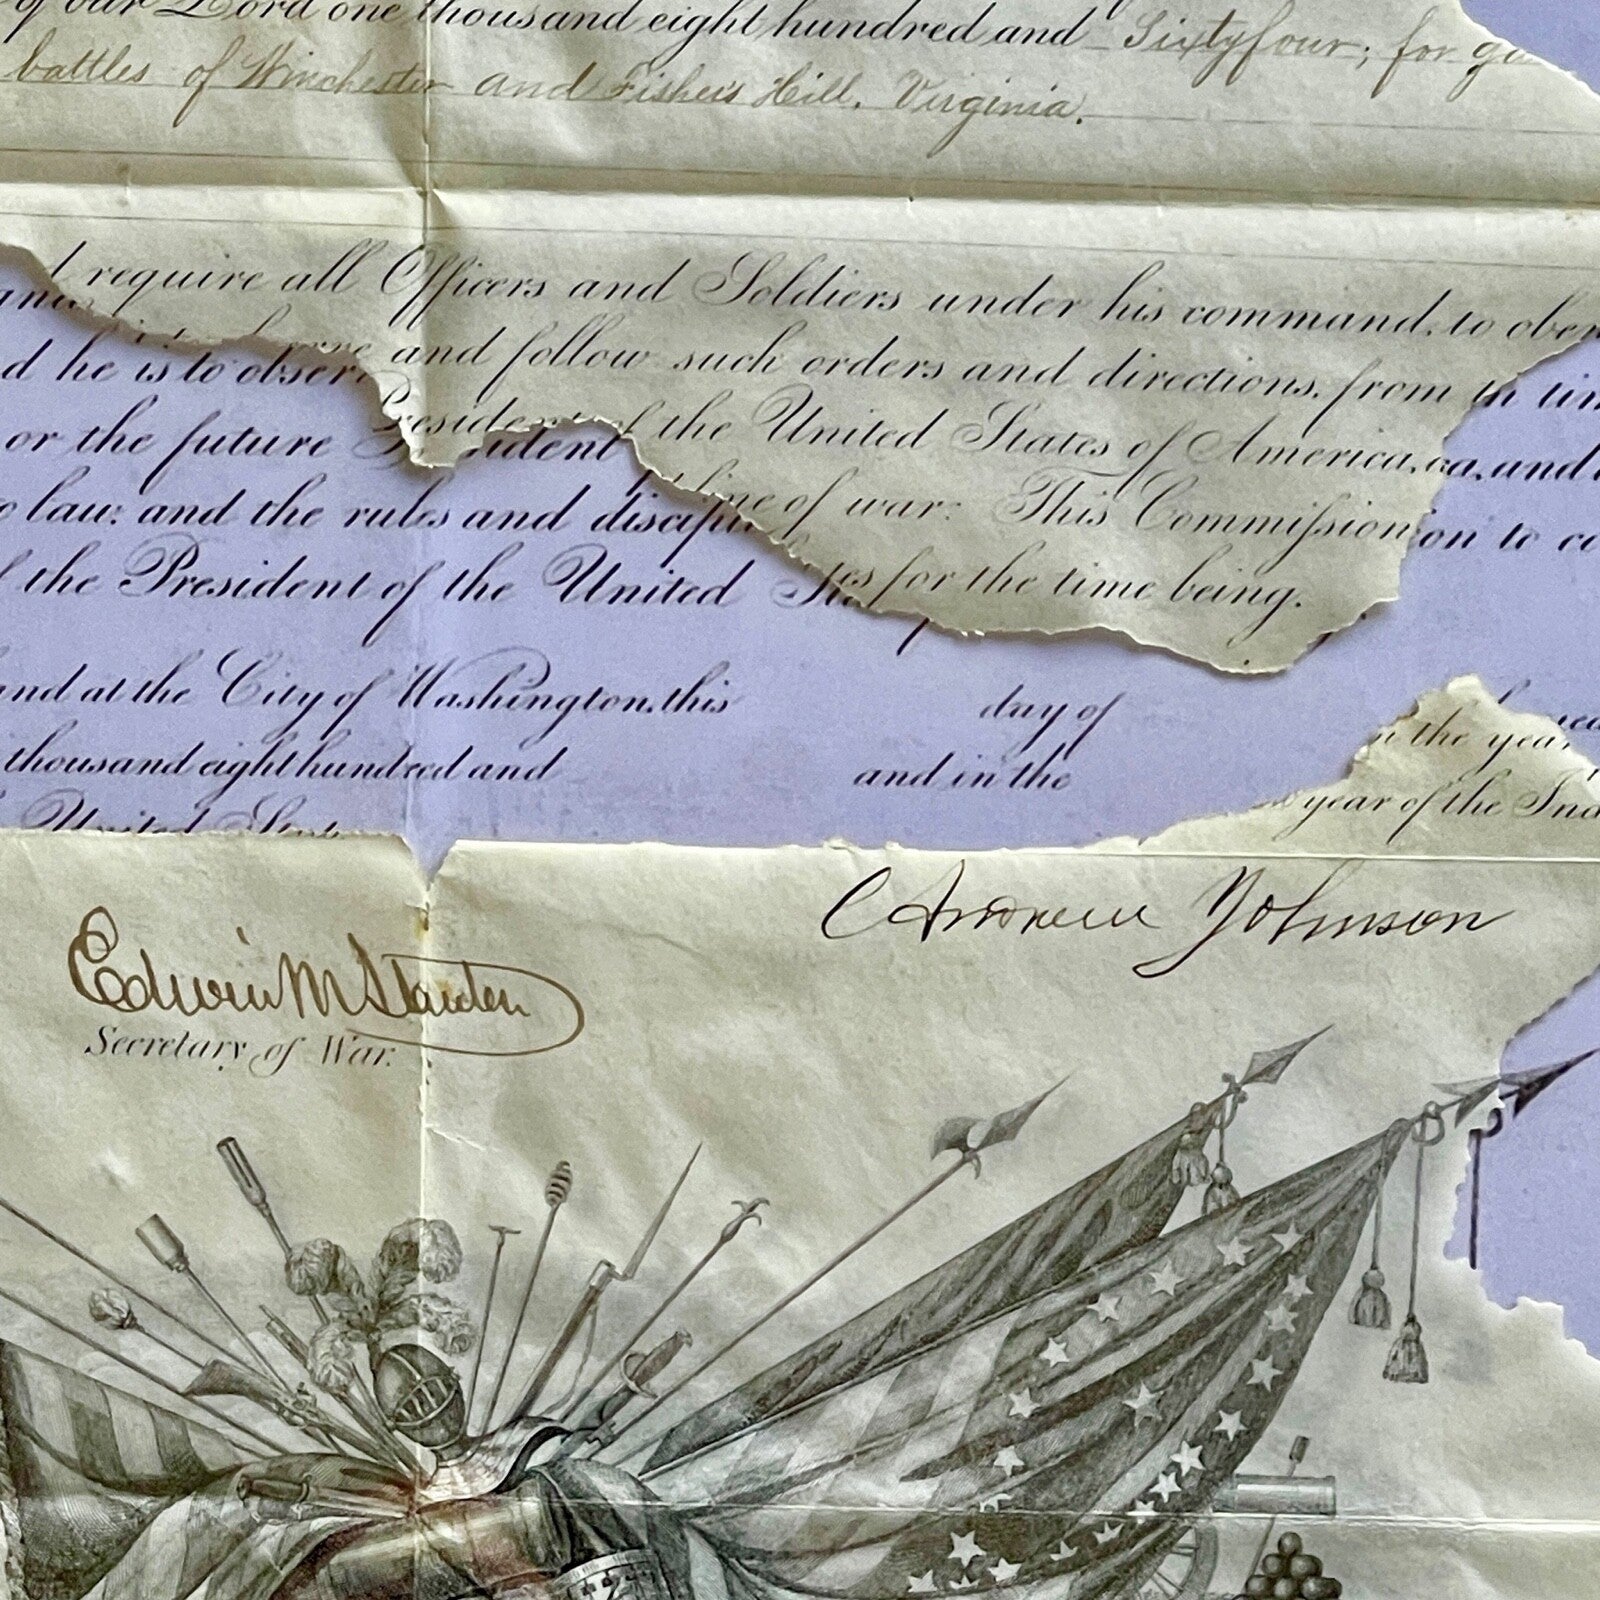 of our Lord one thousand eight hundred and Sixtyfour; for ga
battles of Winchester and Fisher's Hill, Virginia.
require all Officers and Soldiers under his command, to obey
and
d he is to observe and follow such orders and directions, from in tim
or the future President of the United States of America, and
o law: and the rules and discipline of war: This Commission to co
f the President of the United States for the time being.
and at the City of Washington, this day of in the year
thousand eight hundred and and in the year of the Ind
United Stat
Andrew Johnson
Edwin M Stanton
Secretary of War.